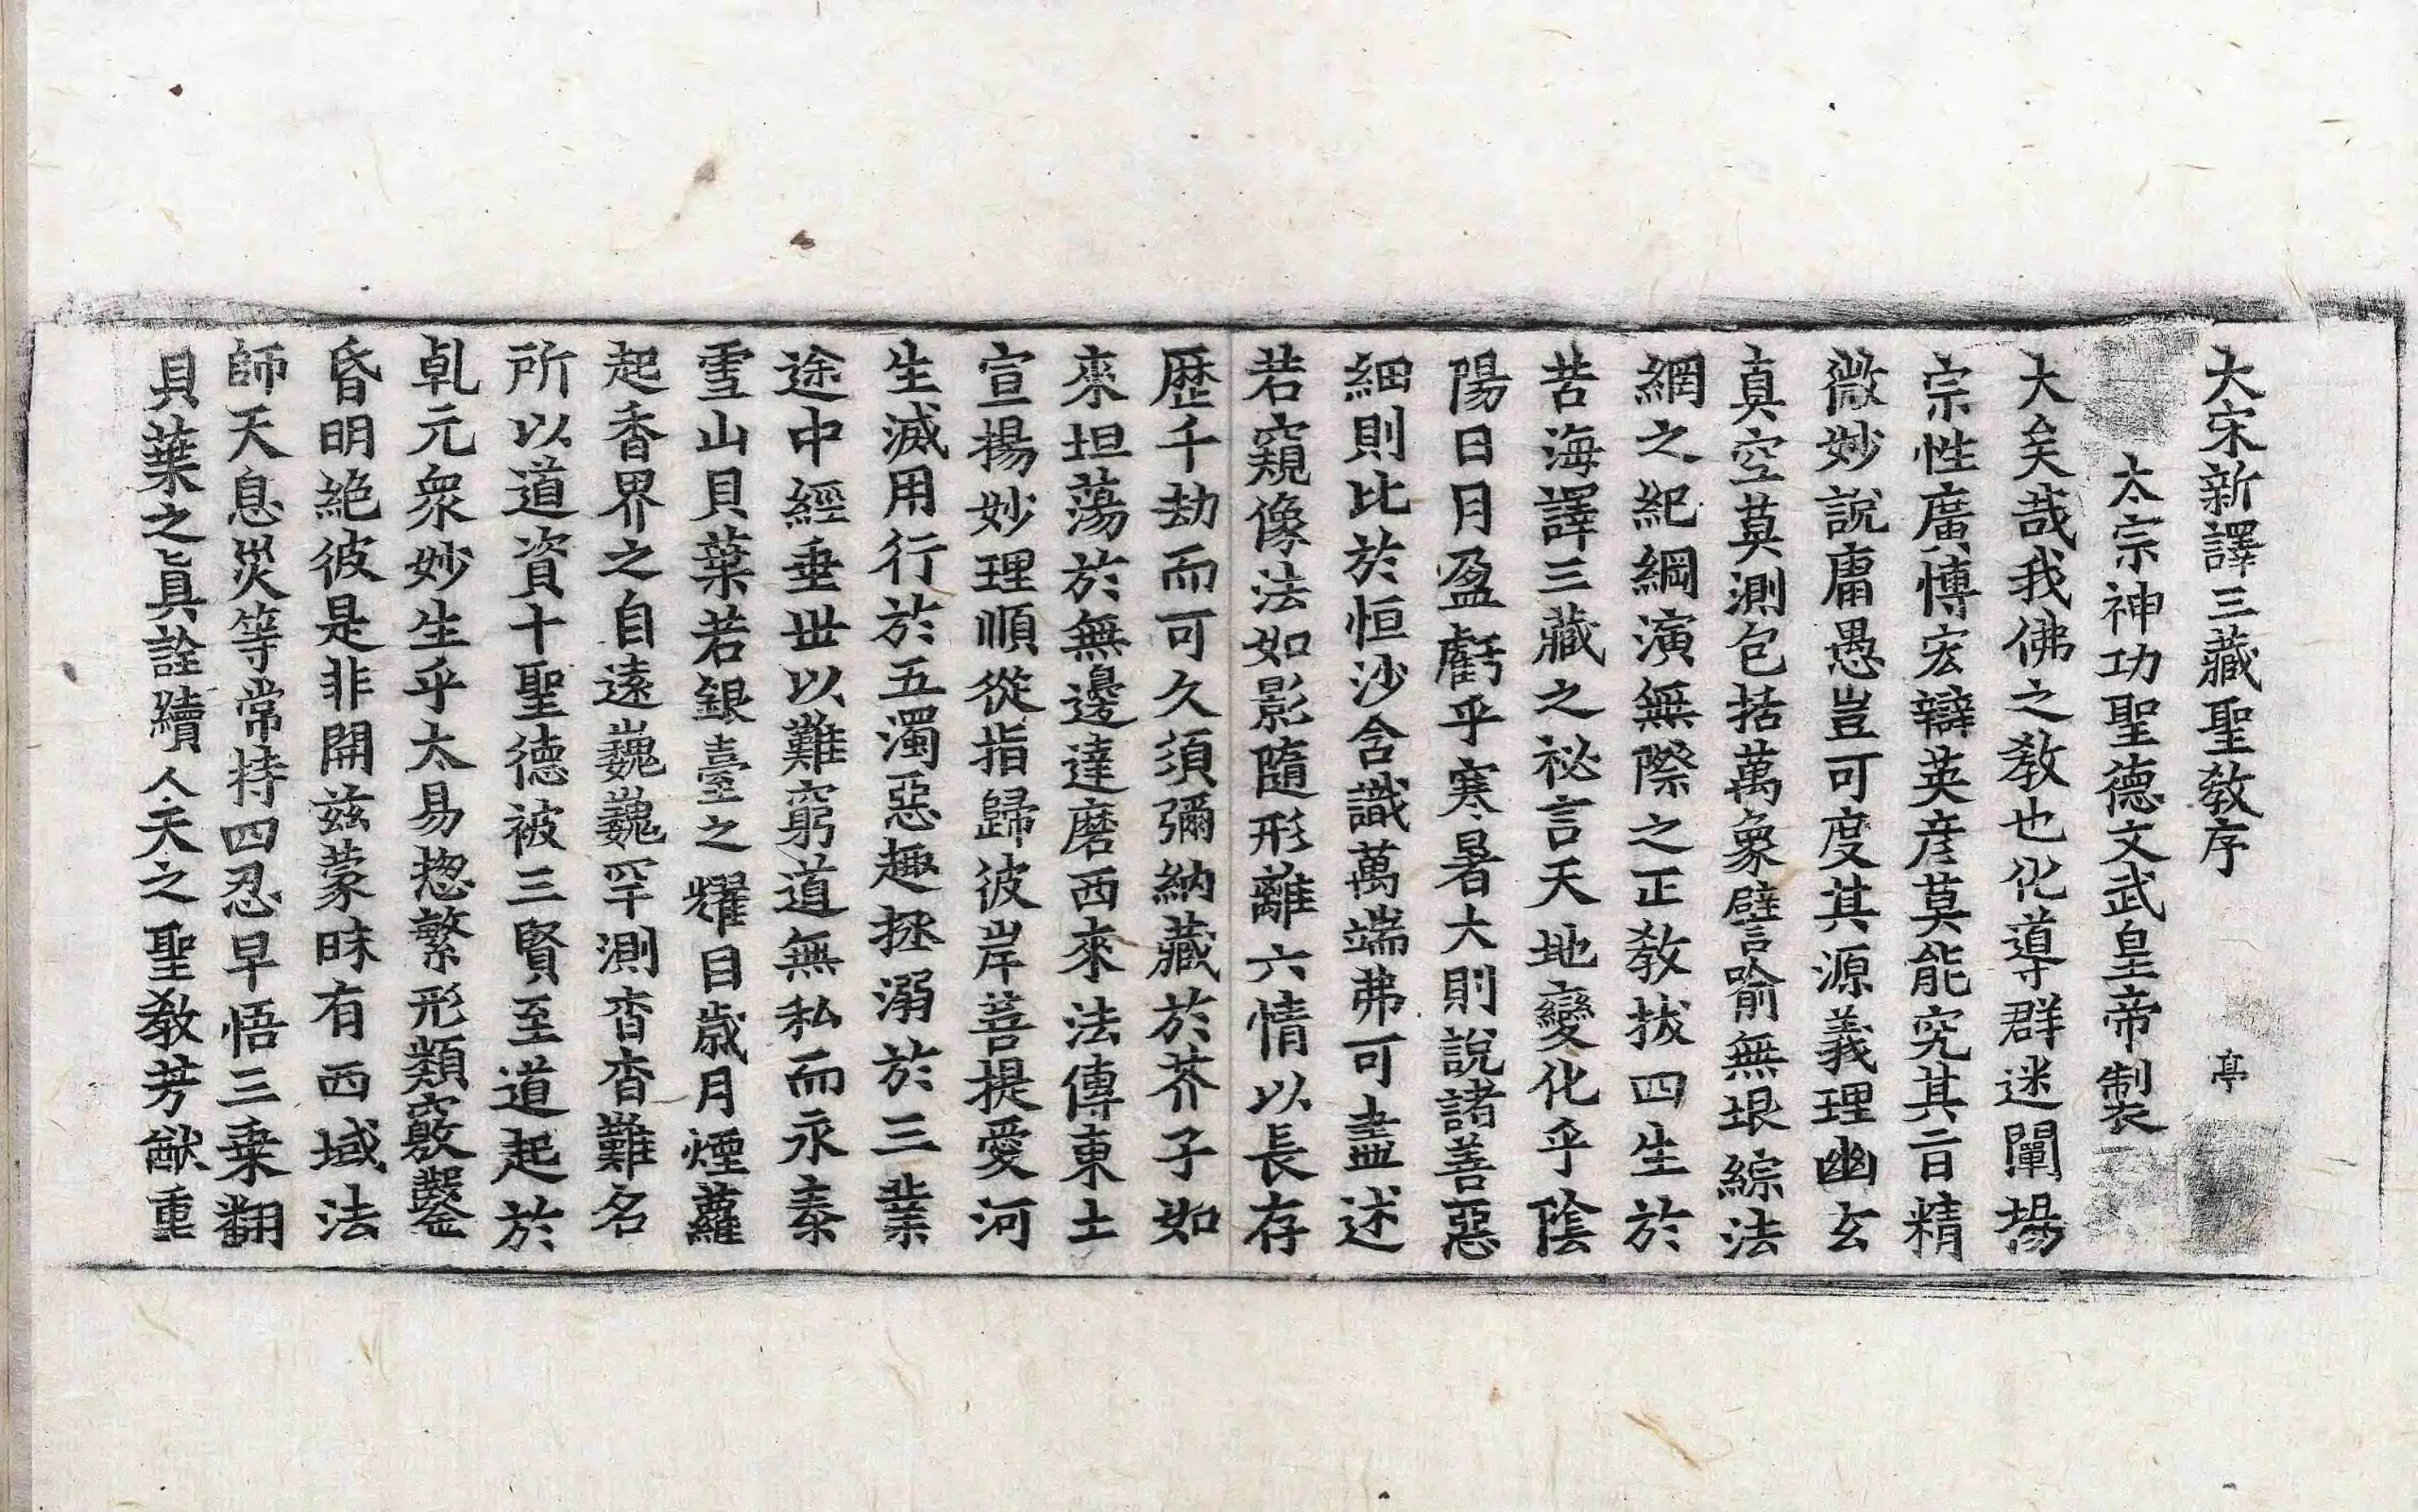 大宋新譯三藏聖教序 亭
太宗神功聖德文武皇帝製
大矣哉我佛之教也化導群迷闡揚
宗性廣博宏辯英彦莫能究其旨精
微妙說庸愚豈可度其源義理幽玄
真空莫測包括萬象譬喻無垠綜法
網之紀綱演無際之正教拔四生於
苦海譯三藏之祕言天地變化乎陰
陽日月盈虧乎寒暑大則說諸善惡
細則比於恒沙含識萬端弗可盡述
若窺像法如影隨形離六情以長存
歷千劫而可久須彌納藏於芥子如
來坦蕩於無邊達磨西來法傳東土
宣揚妙理順從指歸彼岸菩提愛河
生滅用行於五濁惡趣拯溺於三業
途中經垂世以難窮道無私而永泰
雪山貝葉若銀臺之耀目歲月煙蘿
起香界之自遠巍巍罕測杳杳難名
所以道資十聖德被三賢至道起於
乹元衆妙生乎太易揔繁形類竅鑿
昏明絶彼是非開茲蒙昧有西域法
師天息災等常持四忍早悟三乗翻
貝葉之眞詮續人天之聖教芳猷重